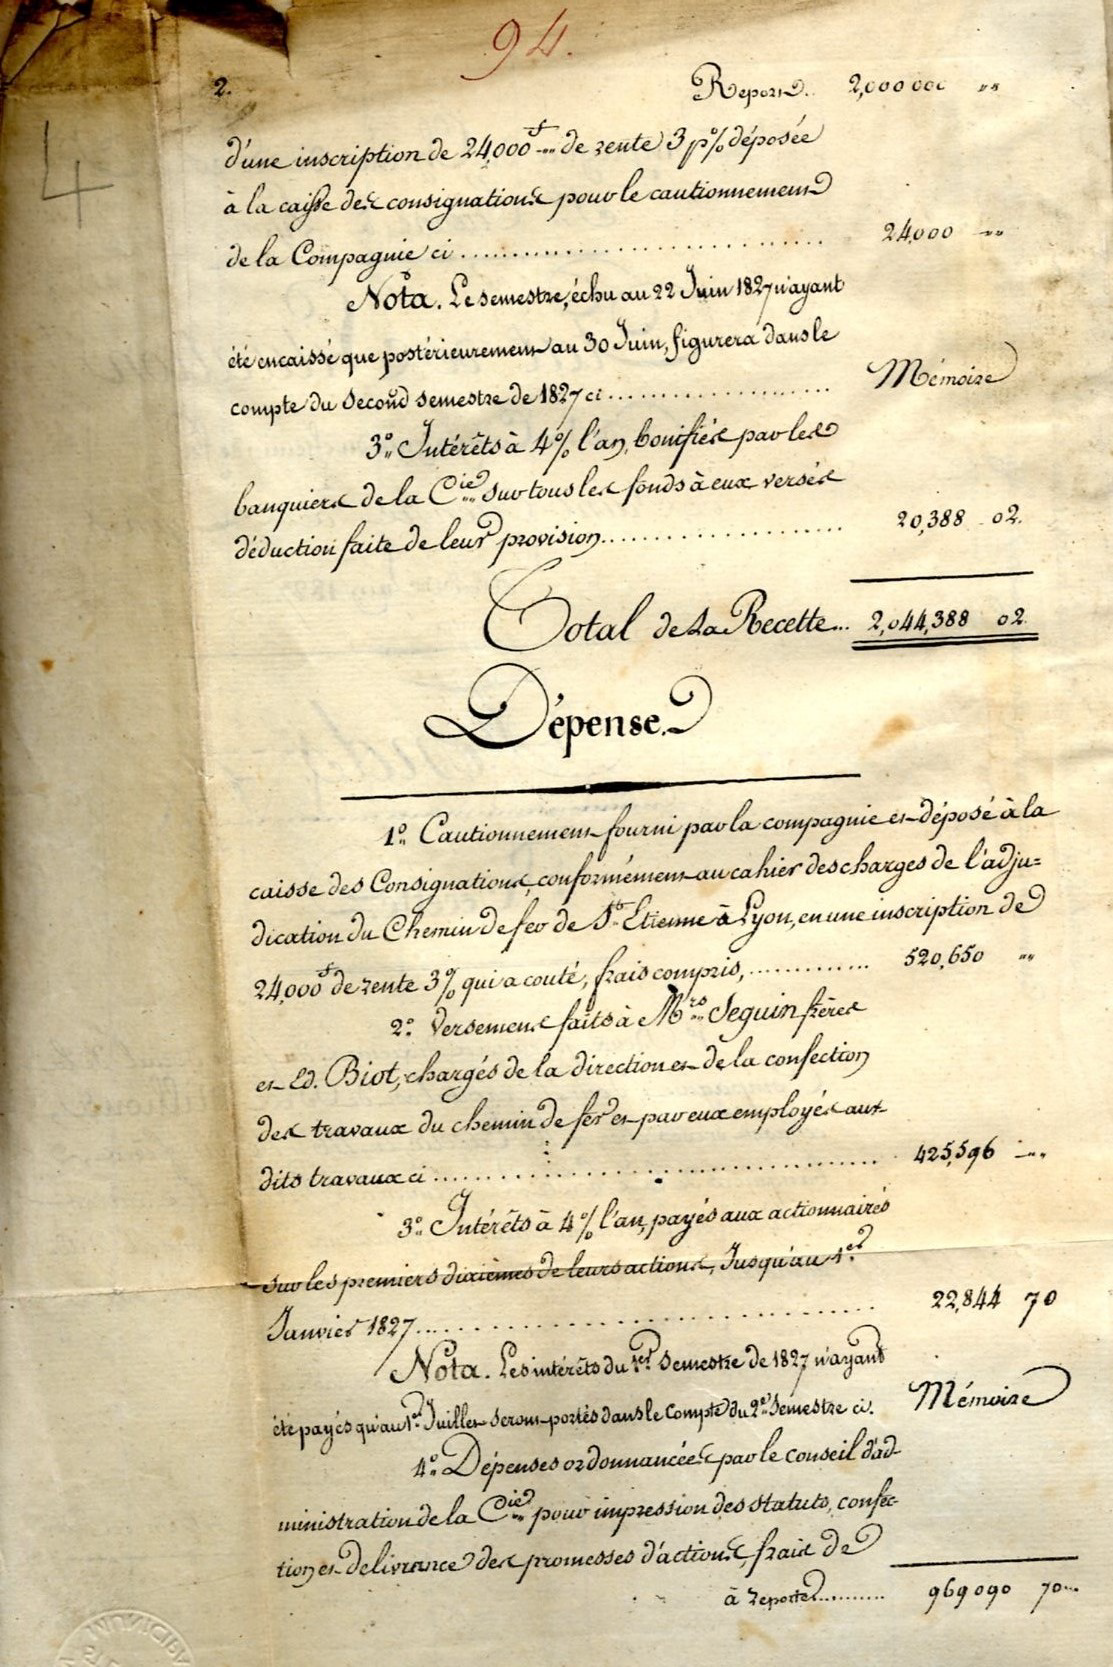 94.
4
2. Report. 2,000 000 "
d'une inscription de 24,000 f "" de rente 3 p% déposée
à la caisse des consignations pour le cautionnement
de la Compagnie ci .......... 24,000 ""
Nota. Le semestre, échu au 22 Juin 1827 n'ayant
été encaissé que postérieurement au 30 Juin, figurera dans le
compte du Second semestre de 1827 ci .......... Mémoire
3° Intérêts à 4% l'an, bonifiés par les
banquiers de la Cie sur tous les fonds à eux versés
déduction faite de leur provision .......... 20,388 02.
Total de La Recette... 2,044,388 02
Dépense.
1° Cautionnement fourni par la compagnie et déposé à la
caisse des Consignations, conformément au cahier des charges de l'adju=
dication du Chemin de fer de St Etienne à Lyon, en une inscription de
24,000 f de rente 3% qui a couté, frais compris, .......... 520,650 "
2° Versements faits à Mrs Seguin frères
et Ed. Biot, chargés de la direction et de la confection
des travaux du chemin de fer et par eux employés aux-
dits travaux ci .......... 425,596 ""
3° Intérêts à 4% l'an, payés aux actionnaires
sur les premiers dixièmes de leurs actions, Jusqu'au 1er
Janvier 1827 .......... 22,844 70
Nota. Les intérêts du 1er Semestre de 1827 n'ayant
été payés qu'au 1er Juillet seront portés dans le Compte du 2e Semestre ci. Mémoire
4° Dépenses ordonnancées par le conseil d'ad-
ministration de la Cie pour impression des statuts, confec-
tion et delivrance des promesses d'actions, frais de
à reporter .......... 969 090 70